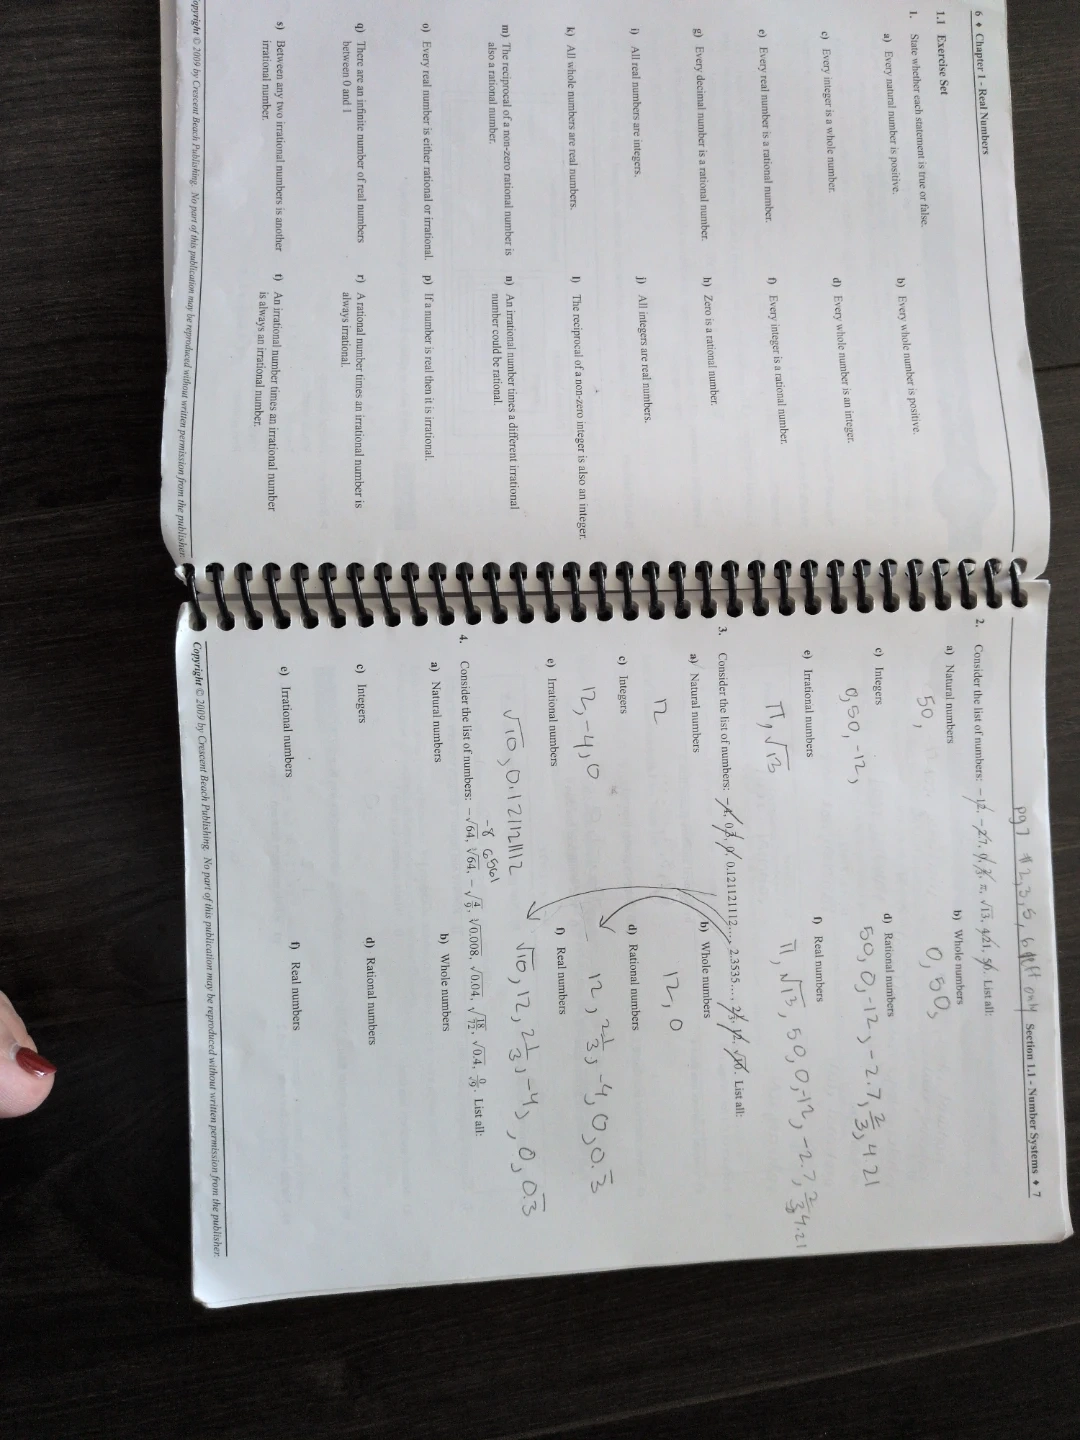 6 ♦ Chapter 1 - Real Numbers
1.1 Exercise Set
1. State whether each statement is true or false.
a) Every natural number is positive.
b) Every whole number is positive.
c) Every integer is a whole number.
d) Every whole number is an integer.
e) Every real number is a rational number.
f) Every integer is a rational number.
g) Every decimal number is a rational number.
h) Zero is a rational number.
i) All real numbers are integers.
j) All integers are real numbers.
k) All whole numbers are real numbers.
l) The reciprocal of a non-zero integer is also an integer.
m) The reciprocal of a non-zero rational number is
also a rational number.
n) An irrational number times a different irrational
number could be rational.
o) Every real number is either rational or irrational.
p) If a number is real then it is irrational.
q) There are an infinite number of real numbers
between 0 and 1
r) A rational number times an irrational number is
always irrational.
s) Between any two irrational numbers is another
irrational number.
t) An irrational number times an irrational number
is always an irrational number.
opyright © 2009 by Crescent Beach Publishing. No part of this publication may be reproduced without written permission from the publisher.
pg 7 # 2,3,5,6 left only
Section 1.1 - Number Systems ♦ 7
2. Consider the list of numbers: −12, −2.7, 0, 2/3, π, √13, 4.21, 50. List all:
a) Natural numbers
b) Whole numbers
50,
0, 50,
c) Integers
d) Rational numbers
0, 50, -12,
50, 0, -12, -2.7, 2/3, 4 21
e) Irrational numbers
f) Real numbers
π, √13
π, √13, 50, 0, -12, -2.7, 2/3 4.21
3. Consider the list of numbers: −4, 0.3̅, 0, 0.121121112..., 2.3535..., 2⅓, 12, √10. List all:
a) Natural numbers
b) Whole numbers
12
12, 0
c) Integers
d) Rational numbers
12, -4, 0
12, 2⅓, -4, 0, 0.3̅
e) Irrational numbers
f) Real numbers
√10, 0.121121112
√10, 12, 2⅓, -4, , 0, 0.3̅
-8 6561
4. Consider the list of numbers: −√64, ∛64, −√(4/9), ∛0.008, √0.04, √(18/72), √0.4, 0/9. List all:
a) Natural numbers
b) Whole numbers
c) Integers
d) Rational numbers
e) Irrational numbers
f) Real numbers
Copyright © 2009 by Crescent Beach Publishing. No part of this publication may be reproduced without written permission from the publisher.